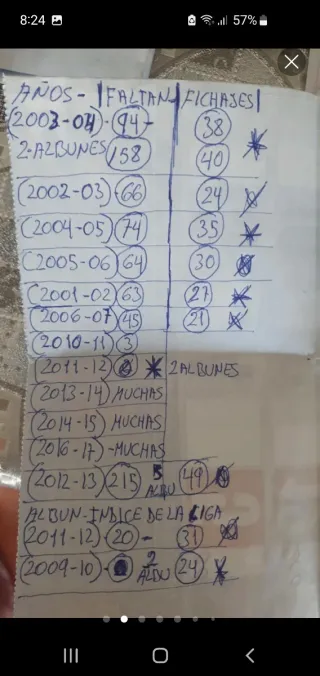 8:24 57%
AÑOS- FALTAN FICHAJES
(2003-04)-94- 38
2-ALBUNES 158 40
(2002-03)-66 24
(2004-05) 74 35
(2005-06) 64 30
(2001-02) 63 27
(2006-07) 45 21
(2010-11) 3
(2011-12) 2 ALBUNES
(2013-14) MUCHAS
(2014-15) MUCHAS
(2016-17)-MUCHAS
(2012-13) 215 5 ALBU 49
ALBUN-INDICE DE LA LIGA
(2011-12)-20- 31
(2009-10)- 2 ALBU 24